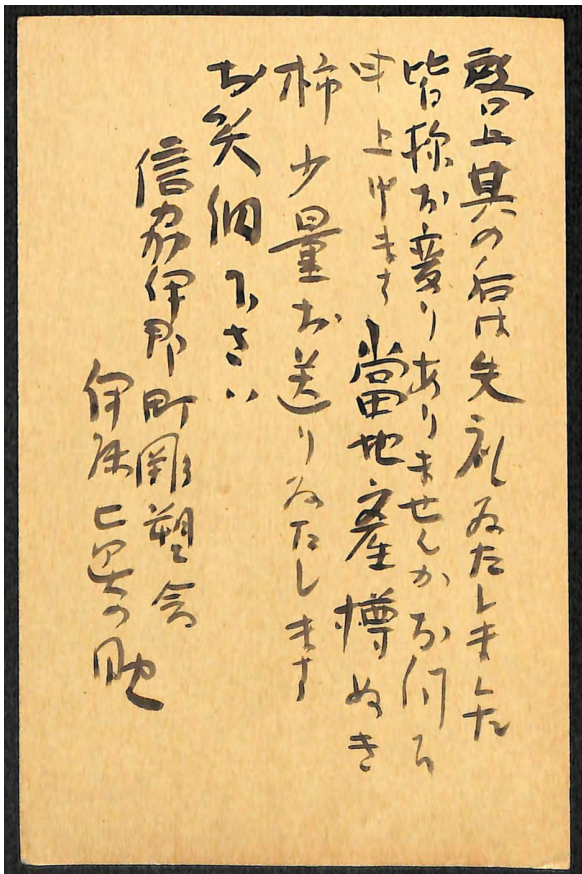 啓上其の后は失礼ゐたしました
皆様お変りありませんかお伺ひ
申上げます 當地産樽ぬき
柿少量お送りゐたします
お笑納下さい
信州伊那町彫塑会
伊藤